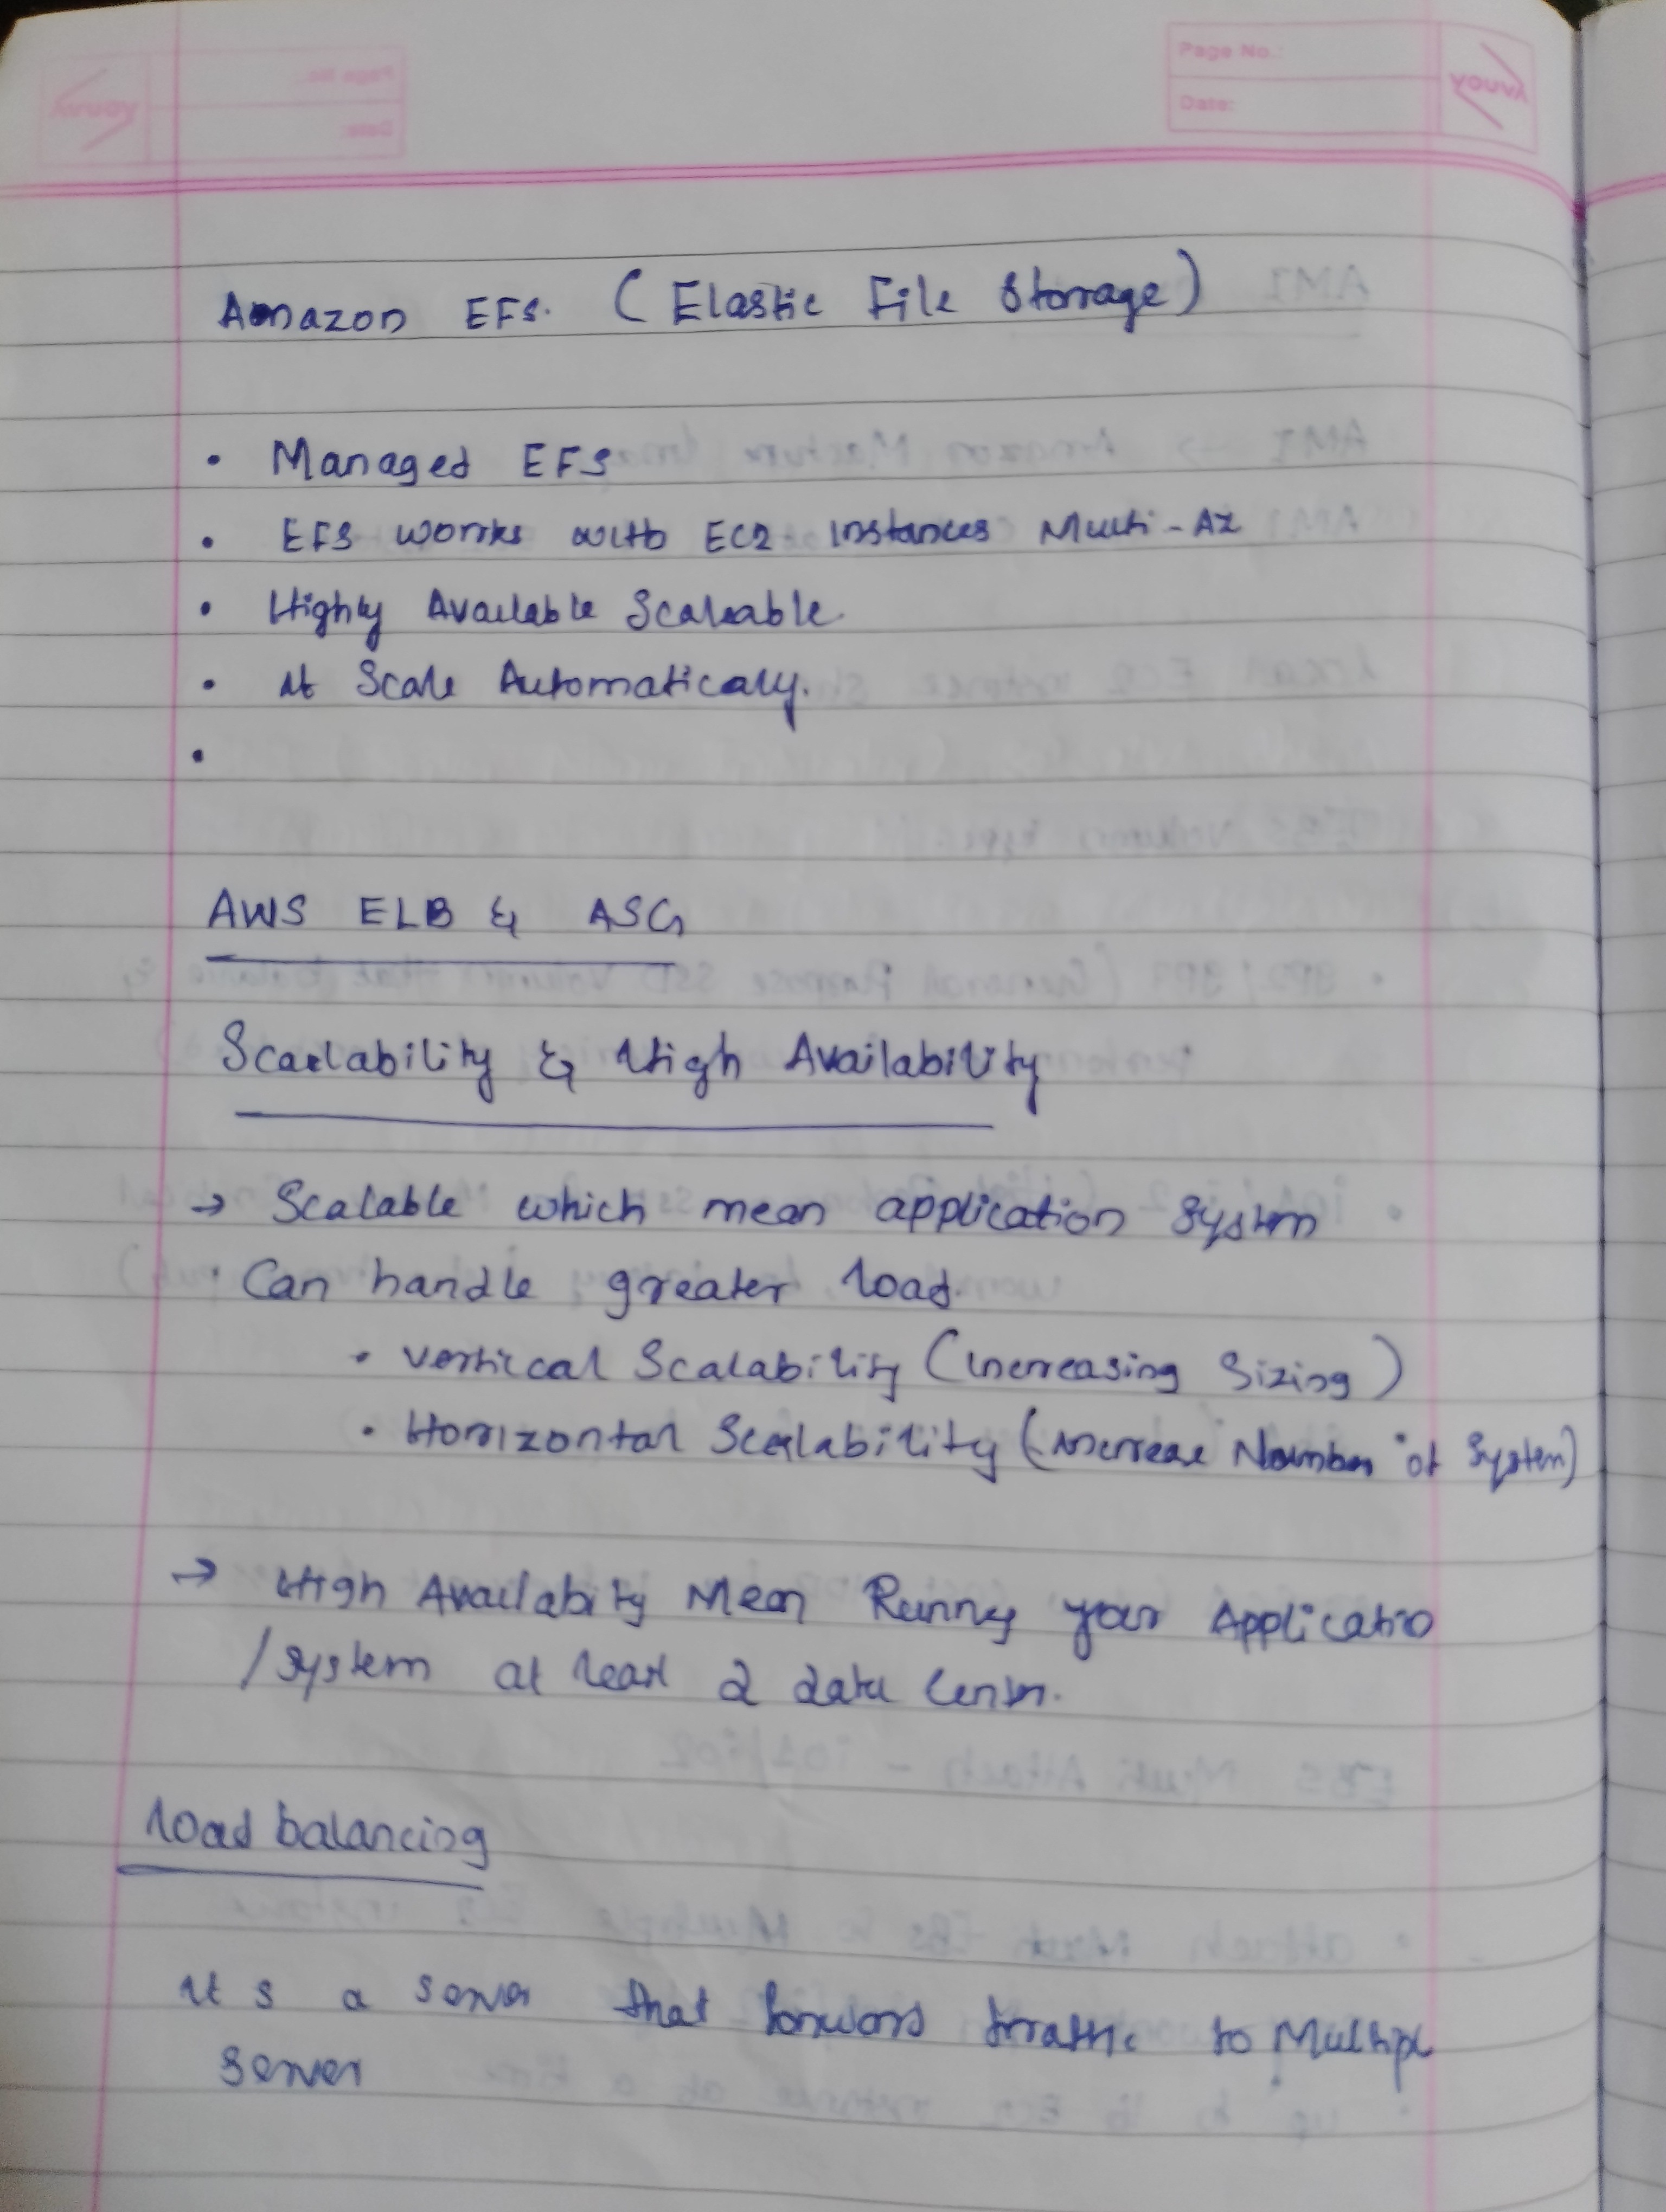 Page No.:
Date:
Youva
Amazon EFS. (Elastic File Storage)
• Managed EFS
• EFS works with EC2 instances Multi-AZ
• Highly Available Scaleable.
• It Scale Automaticaly.
•
AWS ELB & ASG
Scalability & High Availability
→ Scalable which mean application System
• Can handle greater load.
• Vertical Scalability (Increasing Sizing)
• Horizontal Scalability (Increase Number of System)
→ High Availabity Mean Runny your Applicatio
/System at least 2 data Center.
Load balancing
It s a server that forward traffic to Multipl
Server